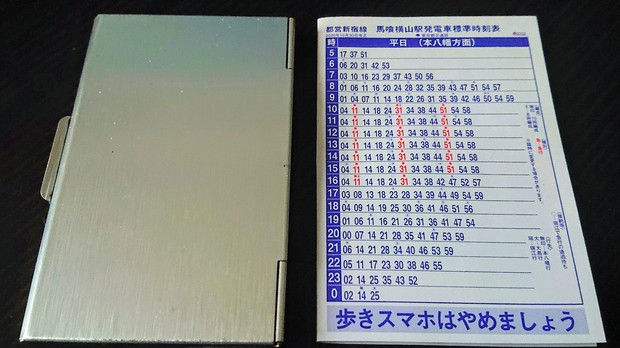 都営新宿線 馬喰横山駅発電車標準時刻表
時 平日 (本八幡方面)
5 17 37 51
6 06 20 31 42 53
7 03 10 16 23 29 37 43 50 56
8 01 06 11 16 20 24 28 32 35 39 43 47 51 54 57
9 01 04 07 11 14 18 22 26 31 35 39 42 46 50 54 59
10 04 11 14 18 24 31 34 38 44 51 54 58
11 04 11 14 18 24 31 34 38 44 51 54 58
12 04 11 14 18 24 31 34 38 44 51 54 58
13 04 11 14 18 24 31 34 38 44 51 54 58
14 04 11 14 18 24 31 34 38 44 51 54 58
15 04 11 14 18 24 31 34 38 44 51 54 58
16 04 11 14 18 24 31 34 38 42 47 52 57
17 03 08 13 18 23 29 34 39 44 49 54 59
18 04 09 14 25 30 36 41 46 51 56
19 01 06 12 17 23 28 34 40 47 53
20 00 07 14 21 28 35 41 47 53 59
21 06 14 21 28 34 40 46 53 59
22 05 11 17 23 30 38 46 55
23 02 14 25 35 43 52
0 02 14 25
歩きスマホはやめましょう